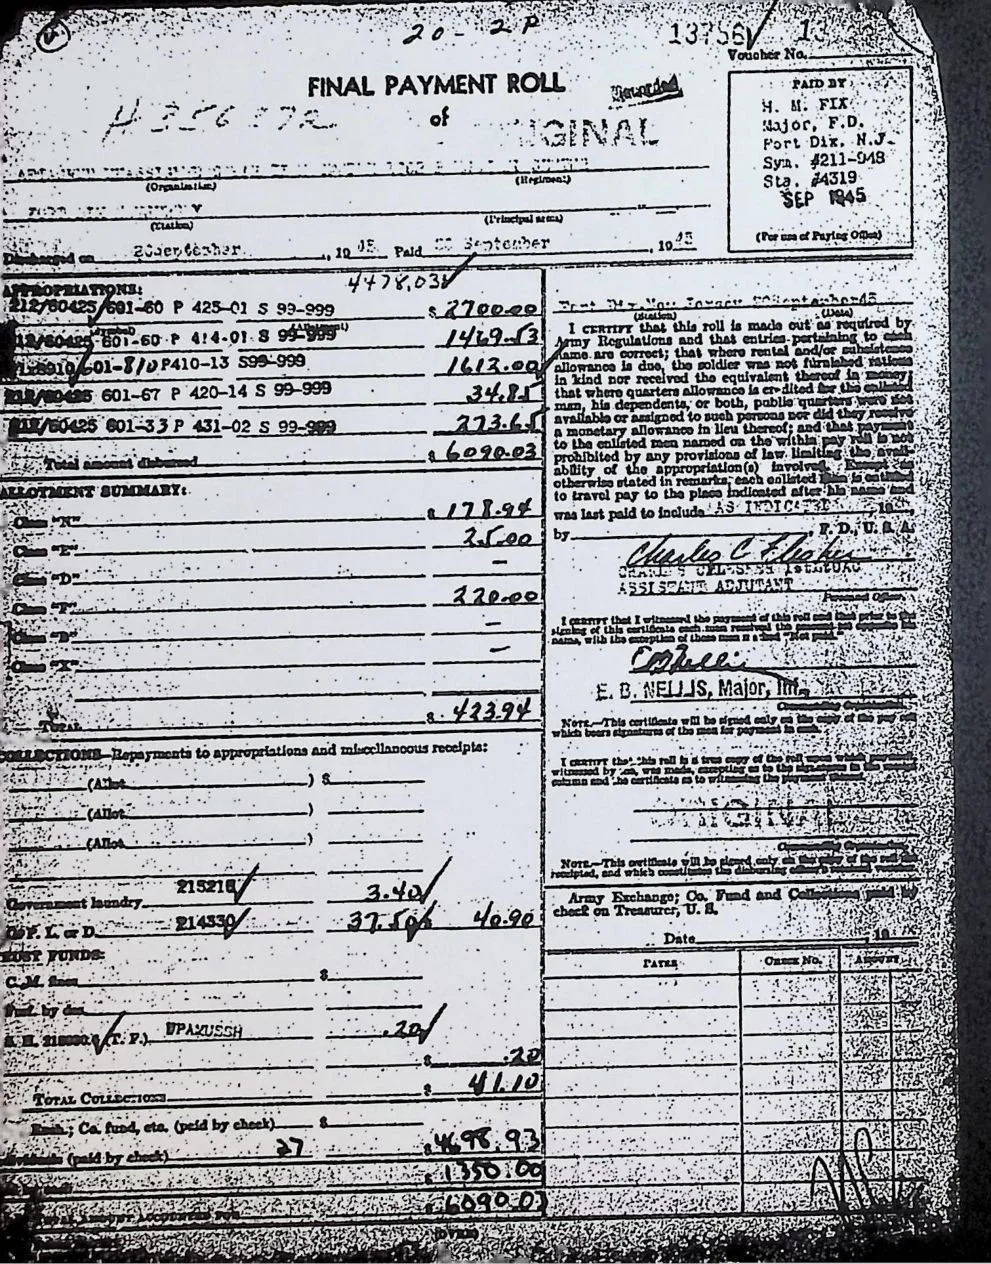 20-2P
13756 13
Voucher No.
FINAL PAYMENT ROLL
of
PAID BY
H. M. FIX
Major, F.D.
Fort Dix, N.J.
Sym. #211-948
Sta. #4319
SEP 1945
(For use of Paying Office)
(Organization) (Regiment)
(Station) (Principal area)
Discharged on 20September, 1945 Paid 20 September, 1945
4478.03
APPROPRIATIONS:
212/60425 601-60 P 425-01 S 99-999 $ 2700.00
212/60425 601-60 P 414-01 S 99-999 1469.53
601-810 P410-13 S99-999 1612.00
212/60425 601-67 P 420-14 S 99-999 34.85
212/60425 601-33 P 431-02 S 99-999 273.65
Total amount disbursed $ 6090.03
ALLOTMENT SUMMARY:
Class "N" $ 178.94
Class "E" 25.00
Class "D" –
Class "F" 220.00
Class "B" –
Class "X" –
TOTAL $ 423.94
COLLECTIONS—Repayments to appropriations and miscellaneous receipts:
(Allot. ) $
(Allot. )
(Allot. )
215218
Government laundry 3.40
Go F. L. or D. 214330 37.50 40.90
TRUST FUNDS:
C.M. fines $
(T. F.) .20
$ .20
TOTAL COLLECTIONS $ 41.10
Exch.; Co. fund, etc. (paid by check) $
(paid by check) 27 $ 4698.93
1350.00
6090.03
(OVER)
Fort Dix New Jersey 20September45
(Station) (Date)
I CERTIFY that this roll is made out as required by
Army Regulations and that entries pertaining to each
name are correct; that where rental and/or subsistence
allowance is due, the soldier was not furnished rations
in kind nor received the equivalent thereof in money;
that where quarters allowance is credited for the enlisted
man, his dependents, or both, public quarters were not
available or assigned to such persons nor did they receive
a monetary allowance in lieu thereof; and that payment
to the enlisted men named on the within pay roll is not
prohibited by any provisions of law limiting the avail-
ability of the appropriation(s) involved. Except as
otherwise stated in remarks, each enlisted man is entitled
to travel pay to the place indicated after his name and
was last paid to include AS INDICATED, 19
by F. D., U. S. A.
Charles C Fleisher
ASSISTANT ADJUTANT
Personnel Officer.
I CERTIFY that I witnessed the payment of this roll and that prior to the
signing of this certificate each man received the amount set opposite his
name, with the exception of those men "Not paid."
E B Nellis
E. B. NELLIS, Major, Inf.
NOTE.—This certificate will be signed only on the copy of the pay roll
which bears signatures of the men for payment in cash.
I CERTIFY that this roll is a true copy of the roll upon which payment
witnessed by me, was made, excepting as to the signatures in the
column and the certificate as to witnessing the payment thereof.
NOTE.—This certificate will be signed only on the copy of the roll
receipted, and which constitutes the disbursing officer's retained
Army Exchange; Co. Fund and Collections paid by
check on Treasurer, U. S.
Date , 19
PAYEE CHECK NO. AMOUNT